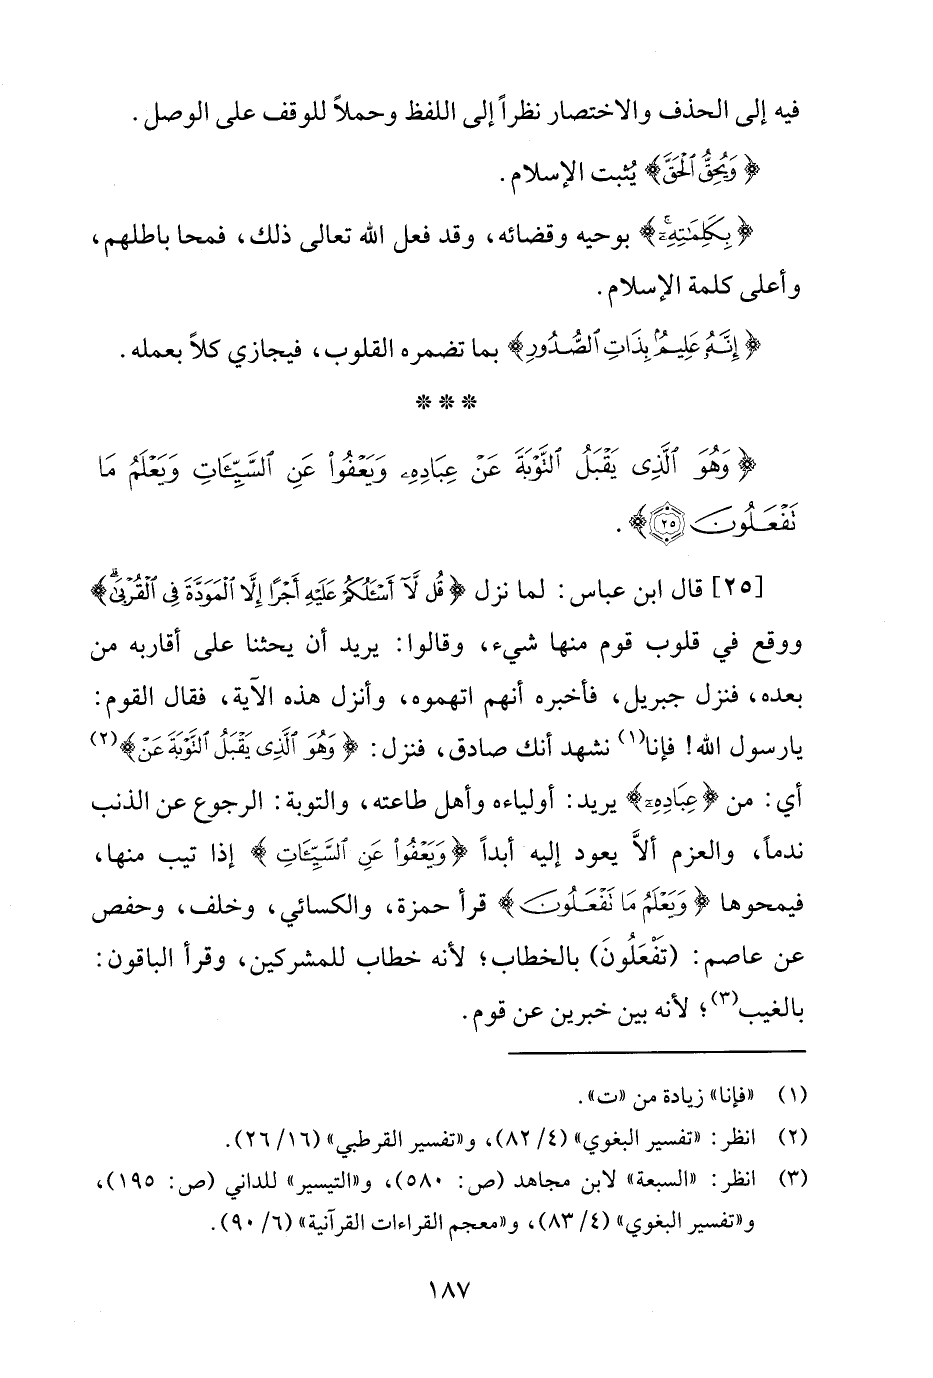 فيه إلى الحذف والاختصار نظراً إلى اللفظ وحملاً للوقف على الوصل.
﴿وَيُحِقُّ ٱلْحَقَّ﴾ يُثبت الإسلام.
﴿بِكَلِمَٰتِهِۦٓ﴾ بوحيه وقضائه، وقد فعل الله تعالى ذلك، فمحا باطلهم،
وأعلى كلمة الإسلام.
﴿إِنَّهُۥ عَلِيمٌۢ بِذَاتِ ٱلصُّدُورِ﴾ بما تضمره القلوب، فيجازي كلاً بعمله.
* * *
﴿وَهُوَ ٱلَّذِى يَقْبَلُ ٱلتَّوْبَةَ عَنْ عِبَادِهِۦ وَيَعْفُوا۟ عَنِ ٱلسَّيِّـَٔاتِ وَيَعْلَمُ مَا
تَفْعَلُونَ ٢٥﴾.
[٢٥] قال ابن عباس: لما نزل ﴿قُل لَّآ أَسْـَٔلُكُمْ عَلَيْهِ أَجْرًا إِلَّا ٱلْمَوَدَّةَ فِى ٱلْقُرْبَىٰ ۗ﴾
ووقع في قلوب قوم منها شيء، وقالوا: يريد أن يحثنا على أقاربه من
بعده، فنزل جبريل، فأخبره أنهم اتهموه، وأنزل هذه الآية، فقال القوم:
يارسول الله! فإنا(١) نشهد أنك صادق، فنزل: ﴿وَهُوَ ٱلَّذِى يَقْبَلُ ٱلتَّوْبَةَ عَنْ﴾(٢)
أي: من ﴿عِبَادِهِۦ﴾ يريد: أولياءه وأهل طاعته، والتوبة: الرجوع عن الذنب
ندماً، والعزم ألاَّ يعود إليه أبداً ﴿وَيَعْفُوا۟ عَنِ ٱلسَّيِّـَٔاتِ﴾ إذا تيب منها،
فيمحوها ﴿وَيَعْلَمُ مَا تَفْعَلُونَ﴾ قرأ حمزة، والكسائي، وخلف، وحفص
عن عاصم: (تَفْعَلُونَ) بالخطاب؛ لأنه خطاب للمشركين، وقرأ الباقون:
بالغيب(٣)؛ لأنه بين خبرين عن قوم.
(١) «فإنا» زيادة من «ت».
(٢) انظر: «تفسير البغوي» (٤/ ٨٢)، و«تفسير القرطبي» (١٦/ ٢٦).
(٣) انظر: «السبعة» لابن مجاهد (ص: ٥٨٠)، و«التيسير» للداني (ص: ١٩٥)،
و«تفسير البغوي» (٤/ ٨٣)، و«معجم القراءات القرآنية» (٦/ ٩٠).
١٨٧